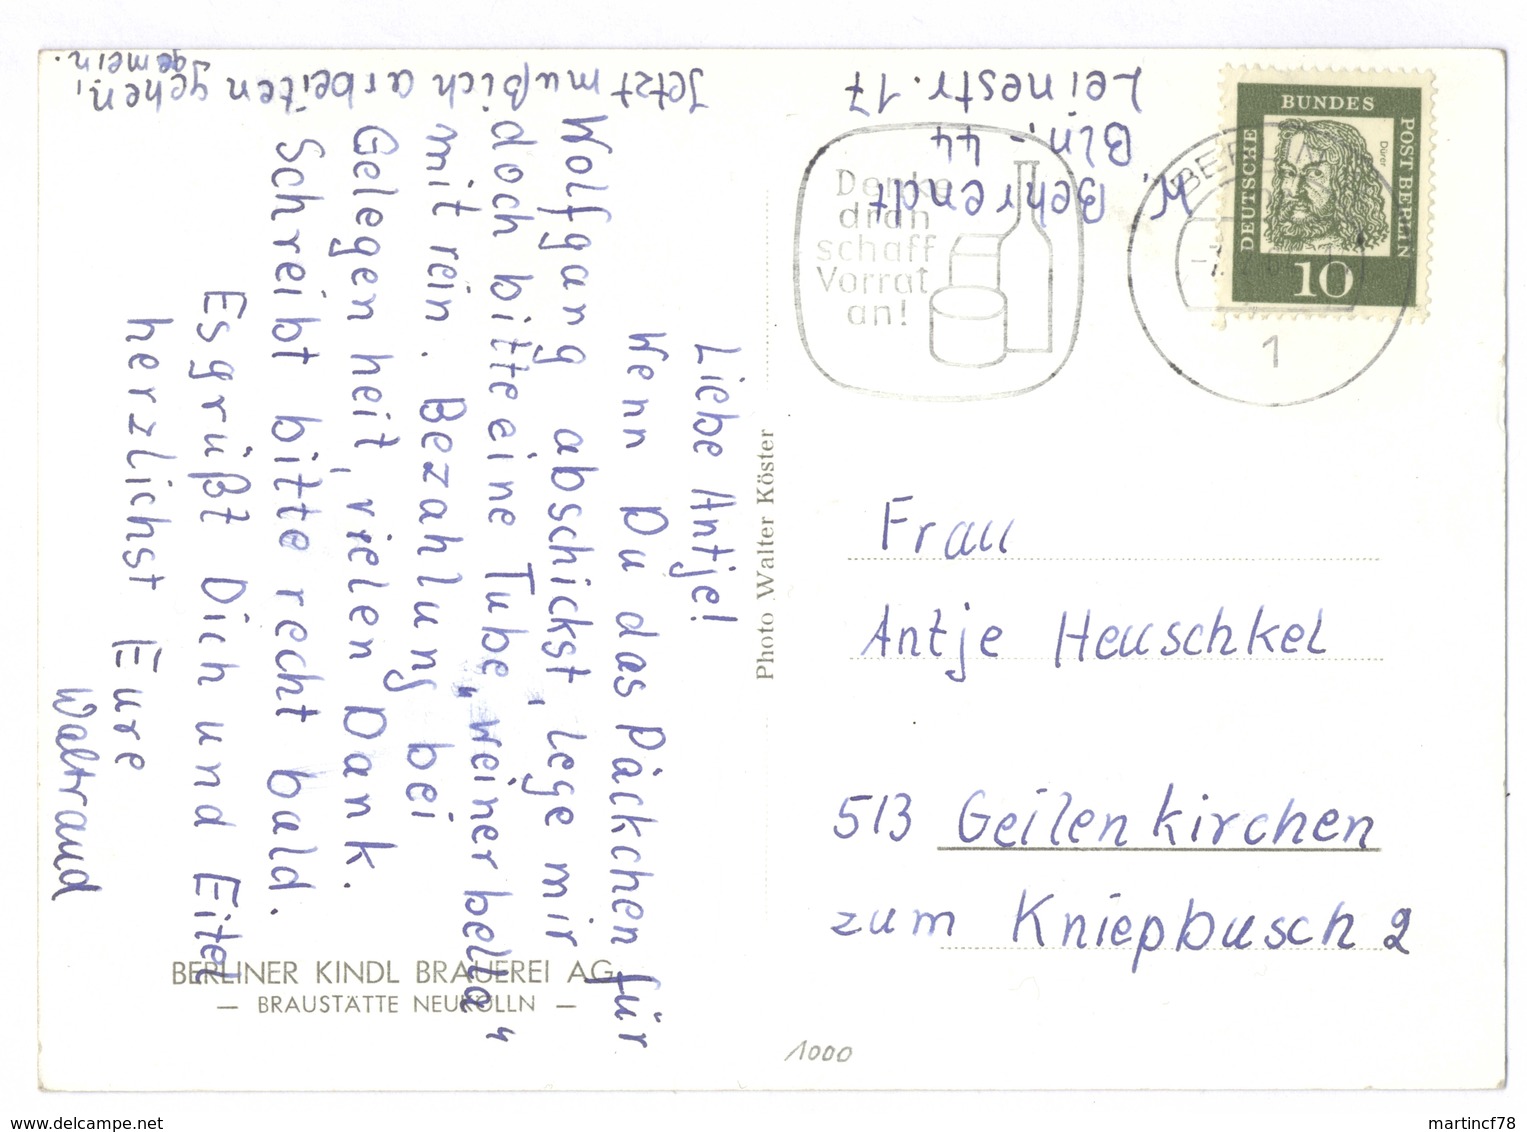 Liebe Antje!
Wenn Du das Päckchen für
Wolfgang abschickst, lege mir
doch bitte eine Tube „weiner bella"
mit rein. Bezahlung bei
Gelegenheit, vielen Dank.
Schreibt bitte recht bald.
Es grüßt Dich und Eitel
herzlichst Eure
Waltraud
Jetzt muß ich arbeiten gehen,
gemein.
W. Behrendt
Bln.- 44
Leinestr. 17
Denke
dran
schaff
Vorrat
an!
BERLIN
1
DEUTSCHE
BUNDES
POST BERLIN
Dürer
10
Photo Walter Köster
Frau
Antje Heuschkel
513 Geilenkirchen
zum Kniepbusch 2
BERLINER KINDL BRAUEREI AG
— BRAUSTÄTTE NEUKÖLLN —
1000
www.delcampe.net
martincf78